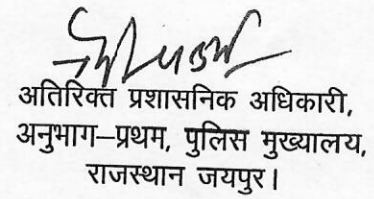 अतिरिक्त प्रशासनिक अधिकारी,
अनुभाग–प्रथम, पुलिस मुख्यालय,
राजस्थान जयपुर।